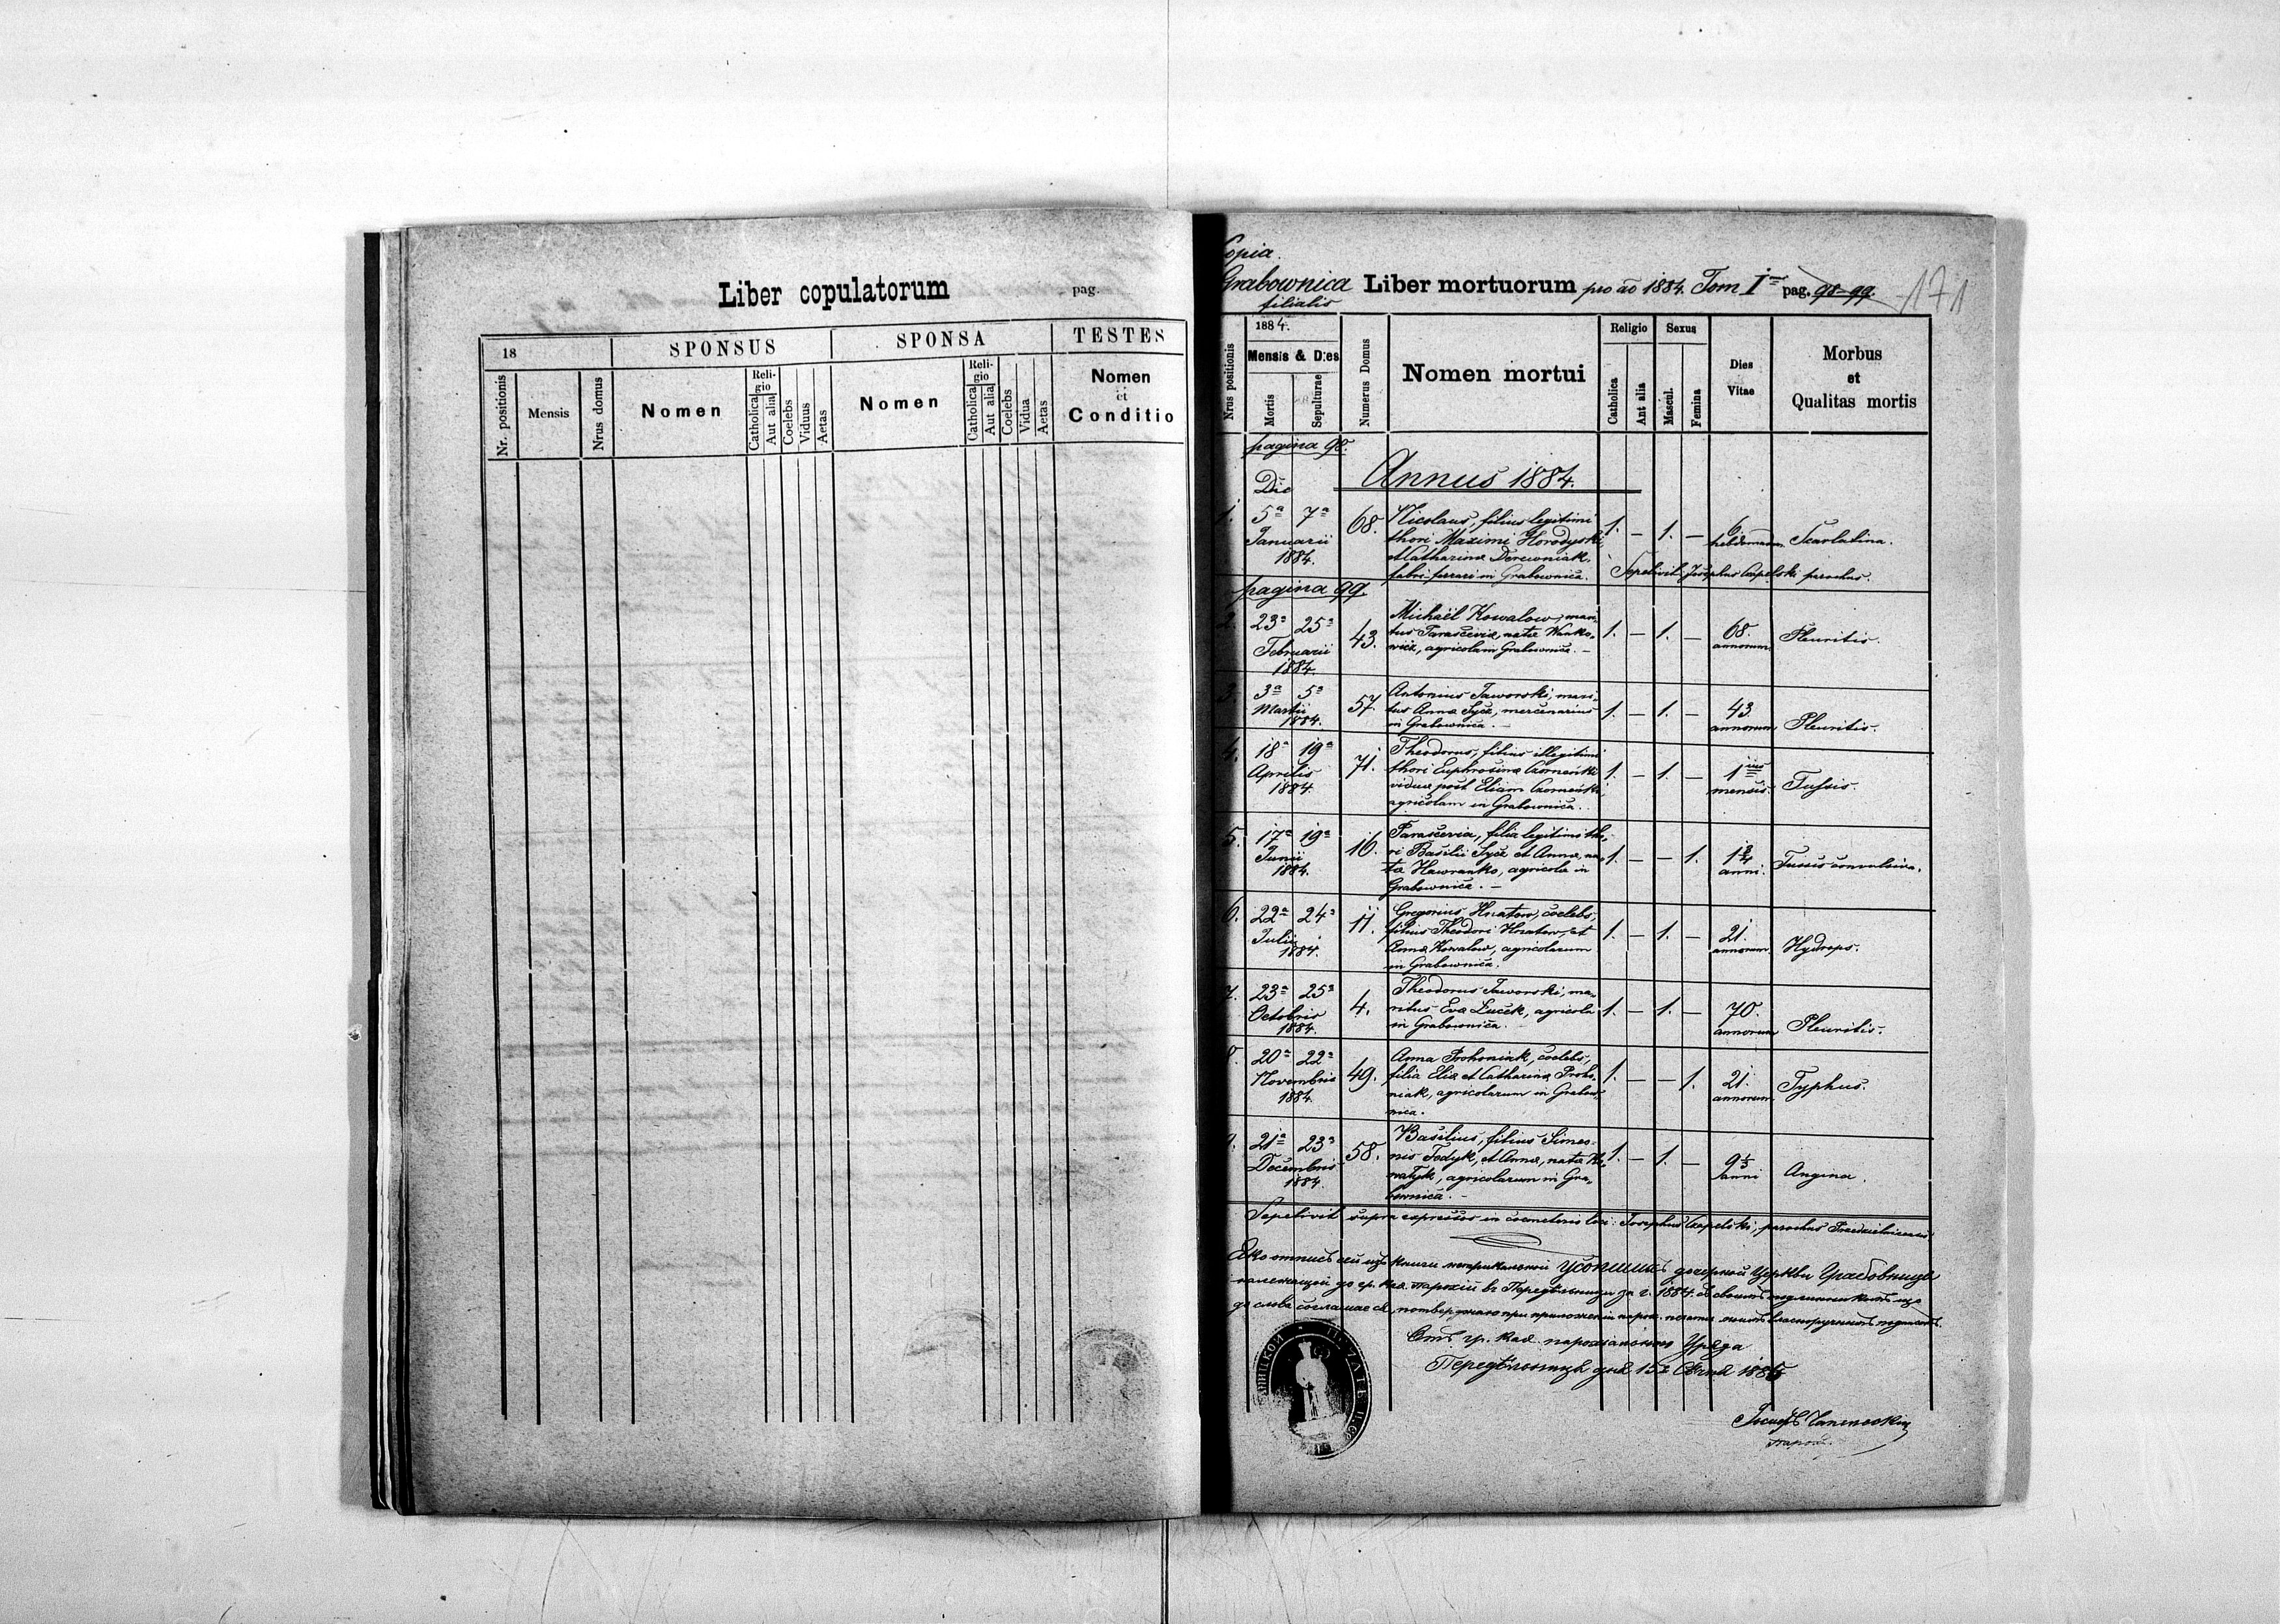 Liber copulatorum pag.
18 SPONSUS SPONSA TESTES
Nr. positionis Mensis Nrus domus Nomen Religio Catholica Aut alia Coelebs Viduus Aetas Nomen Religio Catholica Aut alia Coelebs Vidua Aetas Nomen et Conditio
Copia.
Grabownica Liber mortuorum pro ao 1884. Tom I pag. 98-99. 171
filialis
Nrus positionis 1884. Mensis & Dies Mortis Sepulturae Numerus Domus Nomen mortui Religio Catholica Aut alia Sexus Mascul. Femina Dies Vitae Morbus et Qualitas mortis
pagina 98.
Die Annus 1884.
1. 5a 7a 68. Nicolaus, filius legitimi 1. — 1. — 6 Scarlatina.
Januarii thori Maximi Horodyski hebdomadum
1884. et Catharina Derewniak,
fabri ferrari in Grabownica. Sepelivit Josephus Czapelski parochus.
pagina 99.
2. 23a 25a 43. Michaël Kowalow, mari- 1. — 1. — 68. Pleuritis.
Februarii tus Parascevia, nata Wanko- annorum
1884. wicz, agricola in Grabownica. —
3. 3a 5a 57. Antonius Jaworski, mari- 1. — 1. — 43. Pleuritis.
Martii tus Anna Sycz, mercenarius annorum
1884. in Grabownica. —
4. 18a 19a 71. Theodorus, filius illegitimi 1. — 1. — 1 Tussis.
Aprilis thori Euphrosina mensis.
1884. vidua post Eliam
agricolam in Grabownica.
5. 17a 19a 16. Parascevia, filia legitimi tho- 1. — — 1. anni. Tussis convulsiva.
Junii ri Basilii Sycz et Anna, na-
1884. ta Hawranko, agricola in
Grabownica. —
6. 22a 24a 11. Gregorius Hnatow, coelebs, 1. — 1. — 21. Hydrops.
Julii filius Theodori Hnatow, et annorum.
1884. Anna Kowalow, agricolarum
in Grabownica.
7. 23a 25a 4. Theodorus Jaworski, ma- 1. — 1. — 70. Pleuritis.
Octobris ritus Eva Lucek, agricola annorum
1884. in Grabownica.
8. 20a 22a 49. Anna Prohoniak, coelebs, 1. — — 1. 21. Typhus.
Novembris filia Elia et Catharina Proho- annorum
1884. niak, agricolarum in Grabow-
nica.
9. 21a 23a 58. Basilius, filius Simeo- 1. — 1. — 9 1/3 Angina.
Decembris nis Fedyk, et Anna, nata anni
1884. agricolarum in Gra-
bownica. —
Sepelivit supra expressos in coemeterio loci: Josephus Czapelski, parochus
Яко отписъ сей изъ книги метрикальной усопшихъ дочерной Церкви Грабовници
належащой до гр. кат. парохіи въ Передѣльници за г. 1884. съ своимъ
до слова согласиеся, потверждаю при приложеніи парох. печати моимъ власноручнымъ подписомъ.
Отъ гр. кат. парохіального Уряда
Передѣльница дня 15 1885
Іосифъ Чапельскій
парохъ.